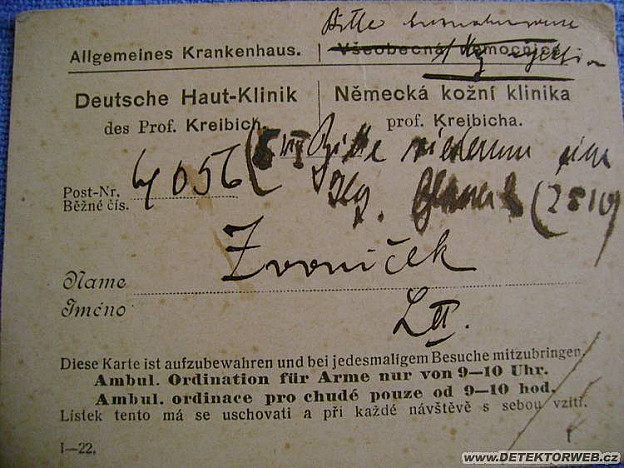 Bitte
Allgemeines Krankenhaus. Všeobecná nemocnice
Deutsche Haut-Klinik
des Prof. Kreibich.
Německá kožní klinika
prof. Kreibicha.
Bitte
Post-Nr.
Běžné čís.
4056
(2810)
Zvoníček
Name
Jméno
L II.
Diese Karte ist aufzubewahren und bei jedesmaligem Besuche mitzubringen.
Ambul. Ordination für Arme nur von 9-10 Uhr.
Ambul. ordinace pro chudé pouze od 9-10 hod.
Lístek tento má se uschovati a při každé návštěvě s sebou vzíti.
I-22.
www.DETEKTORWEB.cz